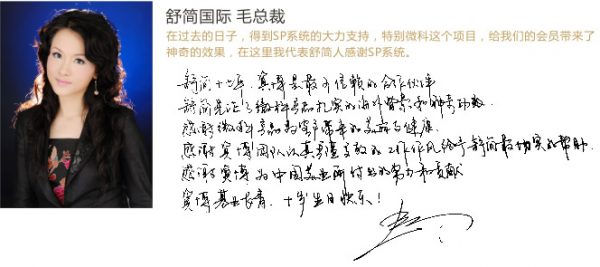 舒简国际 毛总裁
在过去的日子，得到SP系统的大力支持，特别微科这个项目，给我们的会员带来了
神奇的效果，在这里我代表舒简人感谢SP系统。
舒简十年，宾博是最可信赖的合作伙伴
舒简见证了微科产品扎实的海外背景和神奇功效
感谢微科产品为客户带来的美丽与健康
感谢宾博团队认真尽责的工作作风给予舒简最切实的帮助
感谢宾博为中国美业所付出的努力和贡献
宾博基业长青，十岁生日快乐！